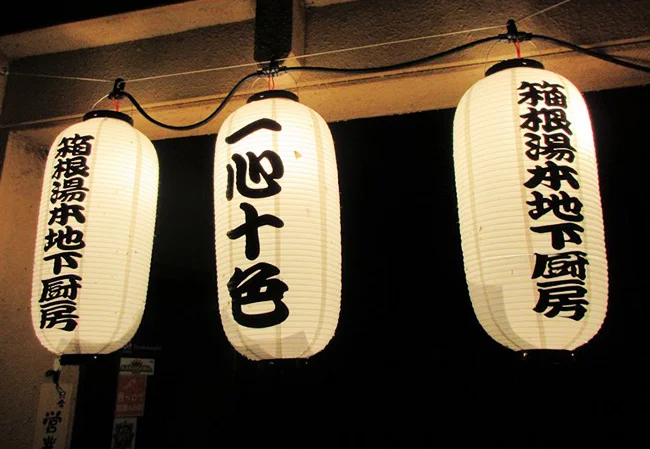 箱根湯本地下厨房
一心十色
箱根湯本地下厨房
営業